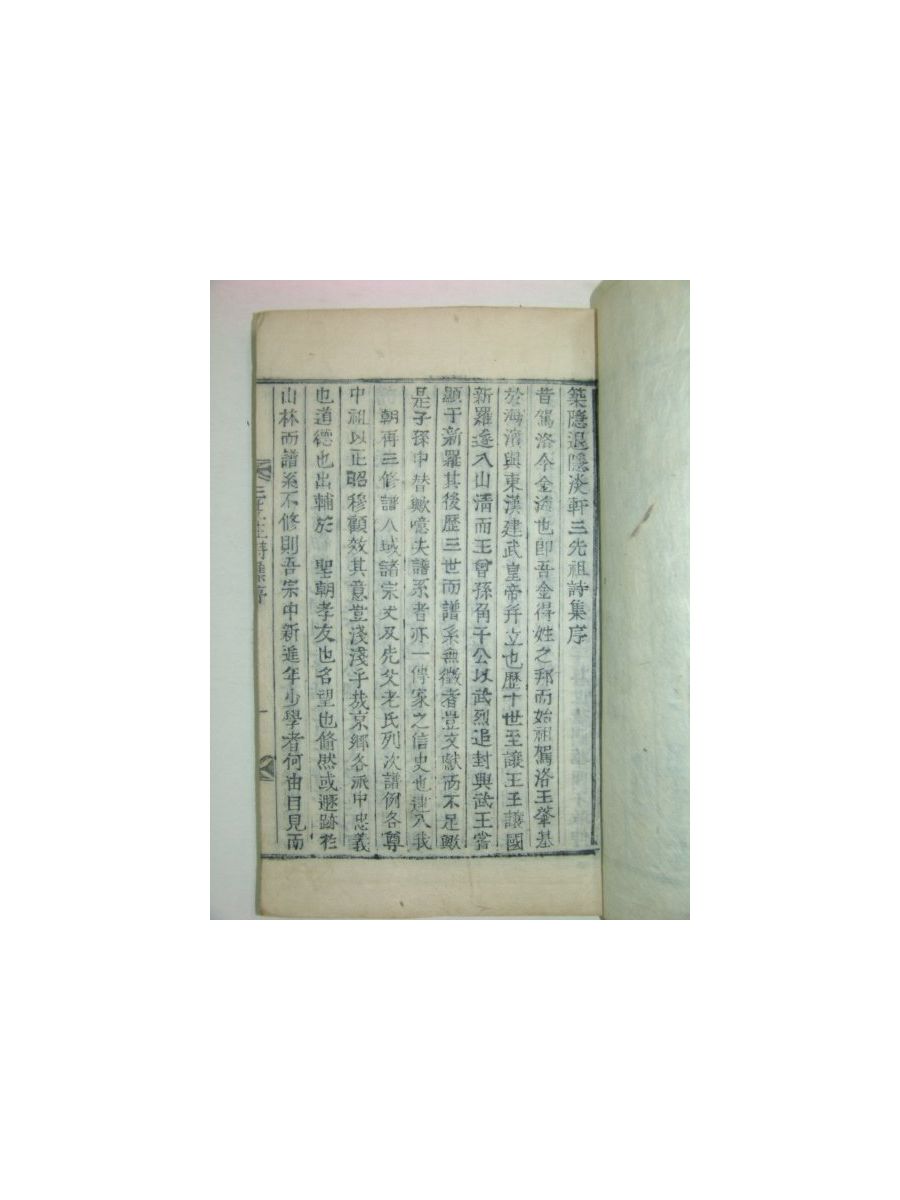 築隱退隱淡軒三先祖詩集序
昔駕洛今金海也卽吾金得姓之邦而始祖駕洛王肇基
於海濱與東漢建武皇帝幷立也歷十世至讓王王讓國
新羅遂入山淸而王曾孫角干公以武烈追封興武王當
顯于新羅其後歷三世而譜系無徵者豈文獻而不足歟
是子孫中替歟噫夫譜系者亦一傳家之信史也逮入我
朝再三修譜八域諸宗丈及先父老氏列次譜例各尊
中祖以正昭穆顧效其意豈淺淺乎哉京鄕各派中忠義
也道德也出輔於 聖朝孝友也名望也脩然或遯跡於
山林而譜系不修則吾宗中新進年少學者何由目見而
詩集序
一